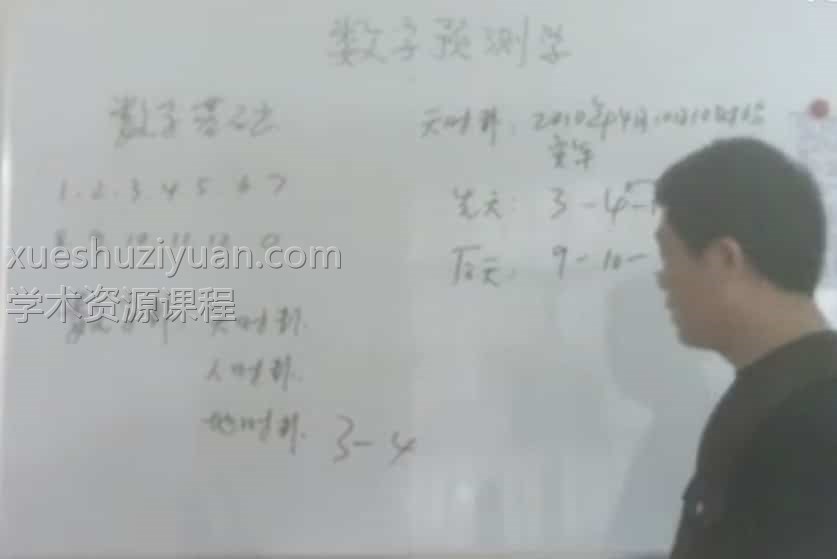 数字预测学
数字
天时卦：2010年4月10日10时
寅年
1.2.3.4.5.6.7
先天：3-4-
8.9.10.11.12.0
后天：9-10-
xueshuziyuan.com
学术资源课程
数字卦 天时卦.
人时卦.
地时卦. 3-4